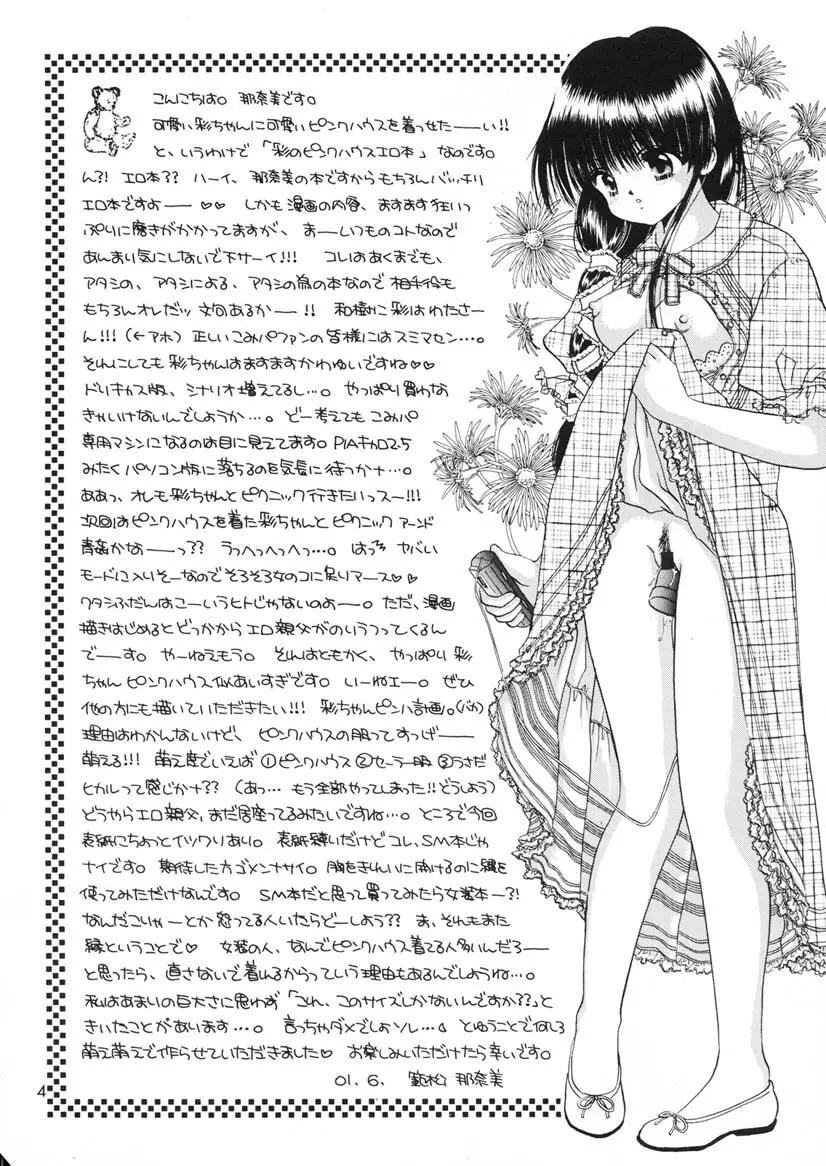 こんにちは。 那奈美です。
可愛い彩ちゃんに可愛いピンクハウスを着せたーーい!!
と、いうわけで「彩のピンクハウスエロ本」なのです。
ん?! エロ本?? ハーイ、那奈美の本ですからもちろんバッチリ
エロ本ですよー♡♡ しかも漫画の内容、ますます狂いっ
ぷりに磨きがかかってますが、まーいつものコトなので
あんまり気にしないで下サーイ!!! コレはあくまでも、
アタシの、アタシによる、アタシの為の本なので相手役も
もちろんオレだッ 文句あるかー!! 和樹に彩はわたさー
ん!!!(←アホ) 正しいこみパファンの皆様にはスミマセン…。
それにしても彩ちゃんはますますかわゆいですね♡♡
ドリキャス版、シナリオ増えてるし…。 やっぱり買わな
きゃいけないんでしょうか…。 どー考えてもこみパ
専用マシンになるのは目に見えてます。PIAキャロ2.5
みたくパソコン版に落ちるのを気長に待つかナ…。
ああっ、オレも彩ちゃんとピクニック行きたいっスー!!!
次回はピンクハウスを着た彩ちゃんとピクニック アーンド
青姦かなーっ?? うっへっへっへっ…。 はっ
モードに入りそーなのでそろそろ女のコに戻りマース♡♡
ワタシふだんはこーいうヒトじゃないのよー。 ただ、漫画
描きはじめるとどっかからエロ親父がのりうつってくるん
でーす。 やーねえもう。 それはともかく、やっぱり彩
ちゃんピンクハウス似あいすぎです。 いーねエー。 ぜひ
他の方にも描いていただきたい!!! 彩ちゃんピンハ計画。(バカ)
理由はわかんないけど、ピンクハウスの服ってすっげー
萌える!!! 萌え度でいえば①ピンクハウス ②セーラー服 ③うさだ
ヒカルって感じかナ?? (あっ… もう全部やってしまった!! どうしよう)
どうやらエロ親父、まだ居座ってるみたいですね…。 ところで今回
表紙にちょっとイツワリあり。 表紙縛いだけどコレ、SM本じゃ
ナイです。 期待した方ゴメンナサイ。 胸をきれいに開けるのに縄を
使ってみただけなんです。 SM本だと思って買ってみたら女装本ー?!
なんだこりゃーとか怒ってる人いたらどーしよう?? ま、それもまた
縁ということで♡ 女装の人、なんでピンクハウス着てる人多いんだろー
と思ったら、直さないで着れるからっていう理由もあるんでしょうね…。
私はあまりの巨大さに思わず「これ、このサイズしかないんですか??」と
きいたことがあります…。 言っちゃダメでしょソレ… とゆうことで
萌え萌えで作らせていただきました♡ お楽しみいただけたら幸いです。
01.6. 那奈美
4